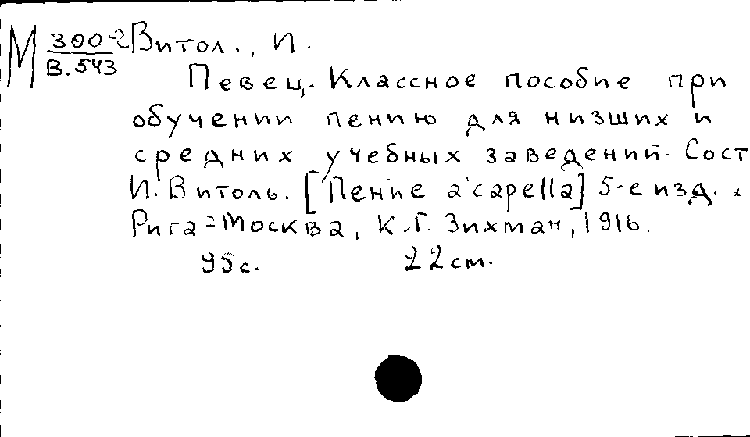 М 300-2 Витол., И.
В.543
Певец. Классное пособие при
обучении пению для низших и
средних учебных заведений. Сост
И. Витоль. [Пение a'capella] 5-е изд.
Рига-Москва, К.Г. Зихман, 1916.
95с. 22см.